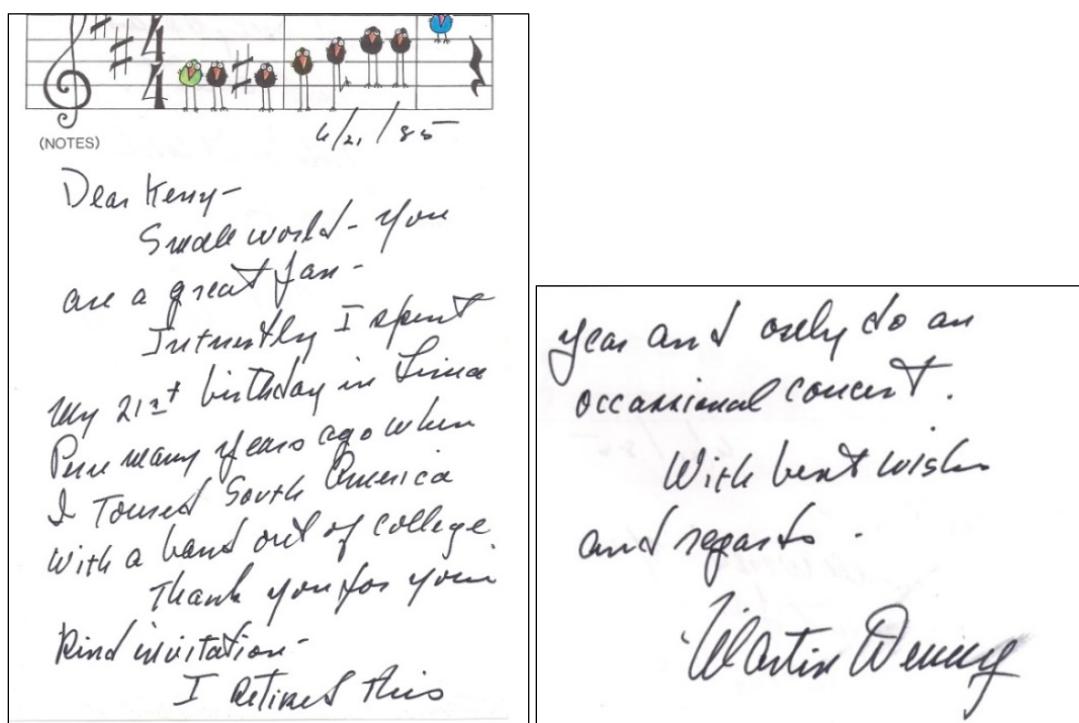 4
4
(NOTES)
6/21/85
Dear Kerry-
Small world - You
are a great fan -
Intrestly I spent
my 21st birthday in Lima
Peru many years ago when
I Toured South America
with a band out of college.
Thank you for your
kind invitation-
I retired this
year and only do an
occassional concert.
With best wishes
and regards.
Martin Denny